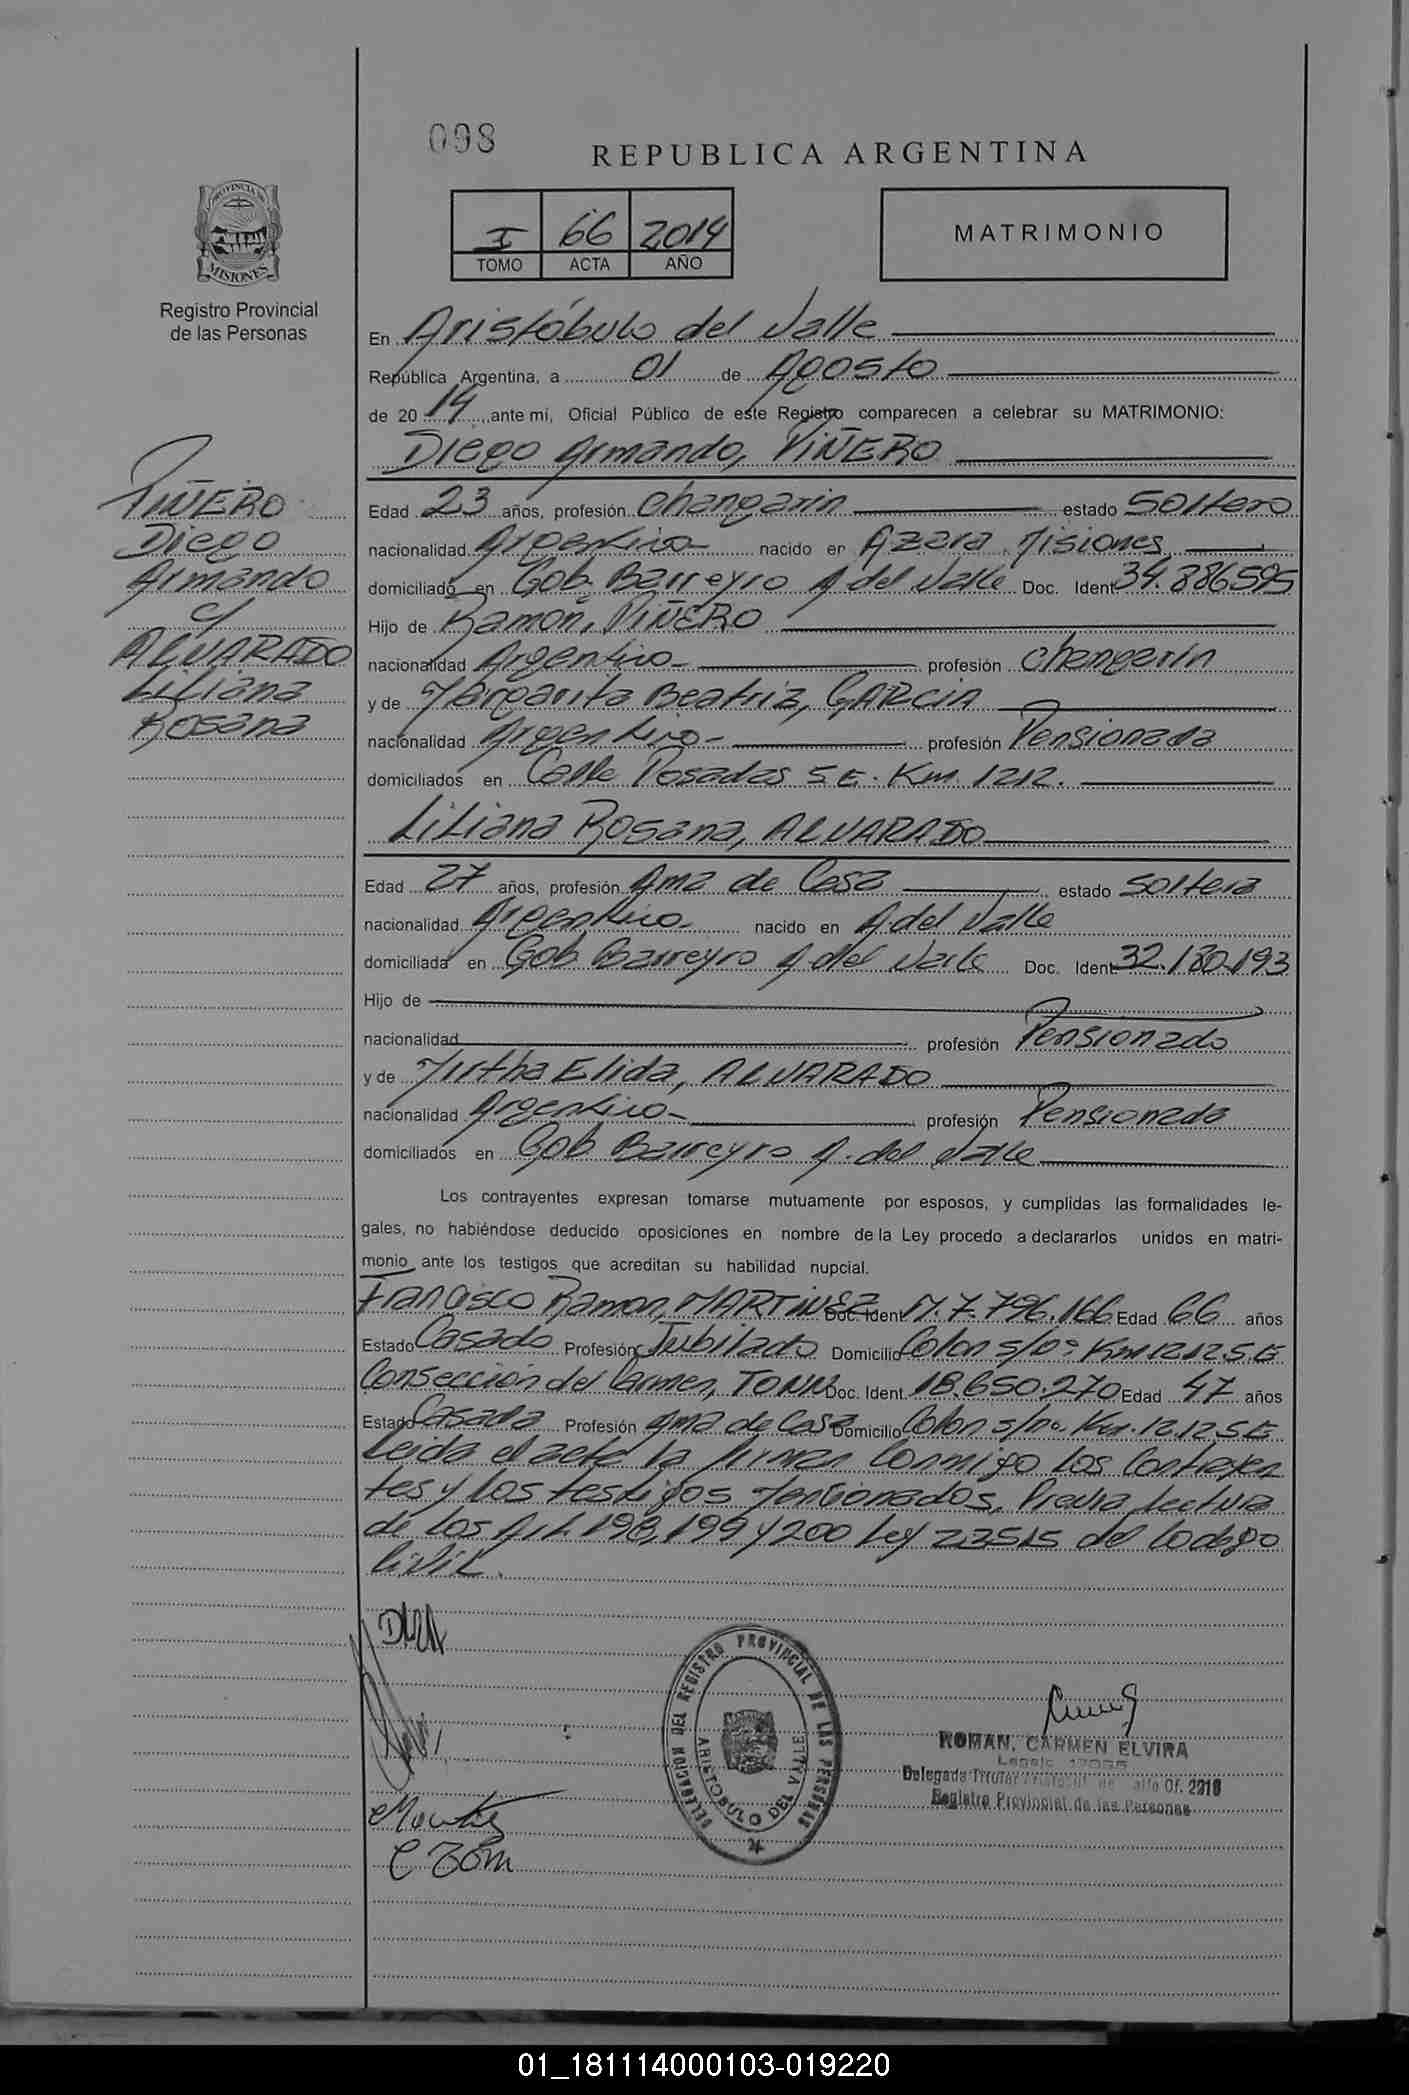 098
REPUBLICA ARGENTINA
I 66 2014
TOMO ACTA AÑO
MATRIMONIO
PROVINCIA DE
MISIONES
Registro Provincial
de las Personas
En Aristóbulo del Valle
República Argentina, a 01 de Agosto
de 2014 ante mi, Oficial Público de este Registro comparecen a celebrar su MATRIMONIO:
Diego Armando, PIÑERO
PIÑERO
Diego
Armando
c/
ALVARADO
Liliana
Rosana
Edad 23 años, profesión changarin estado Soltero
nacionalidad Argentino nacido en Azara, Misiones
domiciliado en Gob. Barreyro A del Valle Doc. Ident 34.886.595
Hijo de Ramón, PIÑERO
nacionalidad Argentino profesión changarin
y de Margarita Beatriz, GARCIA
nacionalidad Argentino profesión Pensionada
domiciliados en Calle Posadas SE. Km. 1212.
Liliana Rosana, ALVARADO
Edad 27 años, profesión Ama de Casa estado soltera
nacionalidad Argentino nacido en A del Valle
domiciliada en Gob Barreyro A del Valle Doc. Ident 32.180.193
Hijo de
nacionalidad profesión Pensionado
y de Mirtha Elida, ALVARADO
nacionalidad Argentino profesión Pensionada
domiciliados en Gob Barreyro A. del Valle
Los contrayentes expresan tomarse mutuamente por esposos, y cumplidas las formalidades le-
gales, no habiéndose deducido oposiciones en nombre de la Ley procedo a declararlos unidos en matri-
monio ante los testigos que acreditan su habilidad nupcial.
Francisco Ramon, MARTINEZ Doc. Ident M.7.796.166 Edad 66 años
Estado Casado Profesión Jubilado Domicilio Colon s/nº Km 1212 SE
Consección del Carmen, TONN Doc. Ident. 18.650.270 Edad 47 años
Estado Casada Profesión Ama de Casa Domicilio Colon s/nº. Km. 1212 SE
Leida el acta la firman conmigo los Contrayen
tes y los testigos mencionados, Previa lectura
de los Art. 198, 199 y 200 Ley 23515 del Codigo
Civil.
DELEGACION DEL REGISTRO PROVINCIAL DE LAS PERSONAS
ARISTOBULO DEL VALLE
ROMAN, CARMEN ELVIRA
Registro Provincial de las Personas
01_181114000103-019220